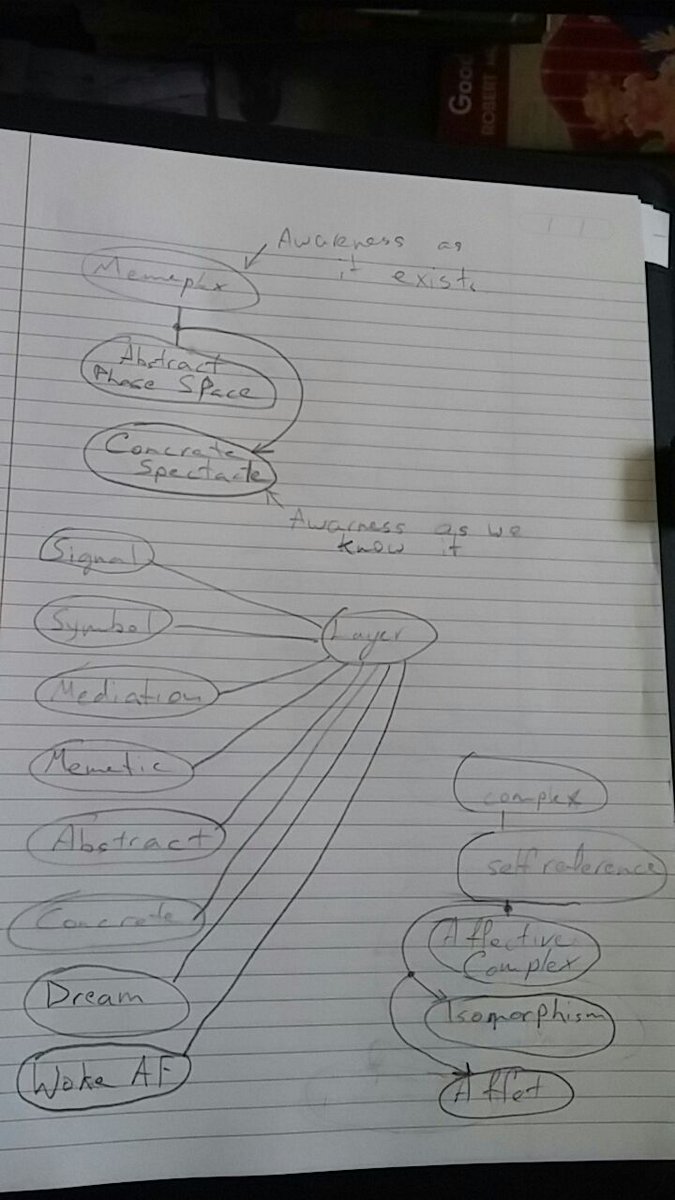 Good
ROBERT
Awareness as
it exists
Memeplx
Abstract
Phase Space
Concrete
Spectacle
Awarness as we
know it
Signal
Symbol
Layer
Mediation
Memetic
Abstract
Concrete
Dream
Woke AF
complex
self reference
Affective
Complex
Isomorphism
Affet